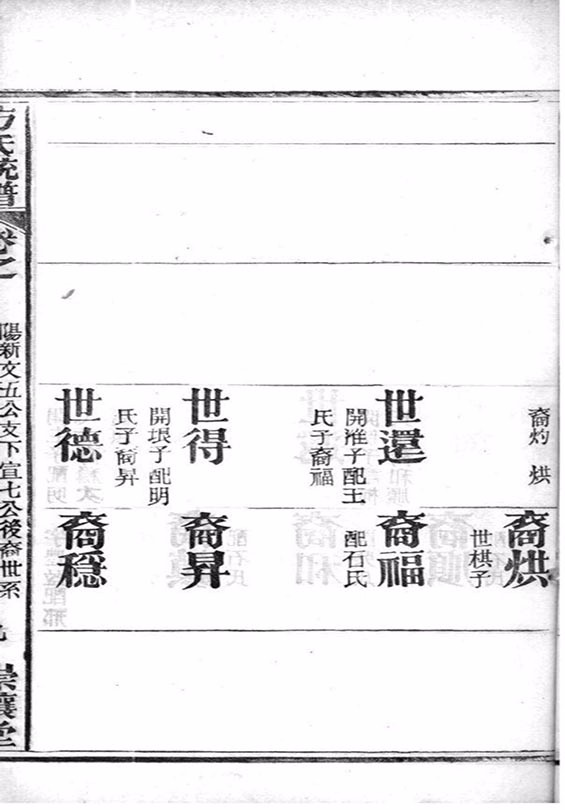 裔灼 烘
世還
開淮子配王
氏子裔福
世得
開垠子配明
氏子裔昇
世德
裔烘
世棋子
裔福
配石氏
裔昇
裔穩
方氏統譜
卷之
陽新文五公支下宣七公後裔世系
崇讓堂